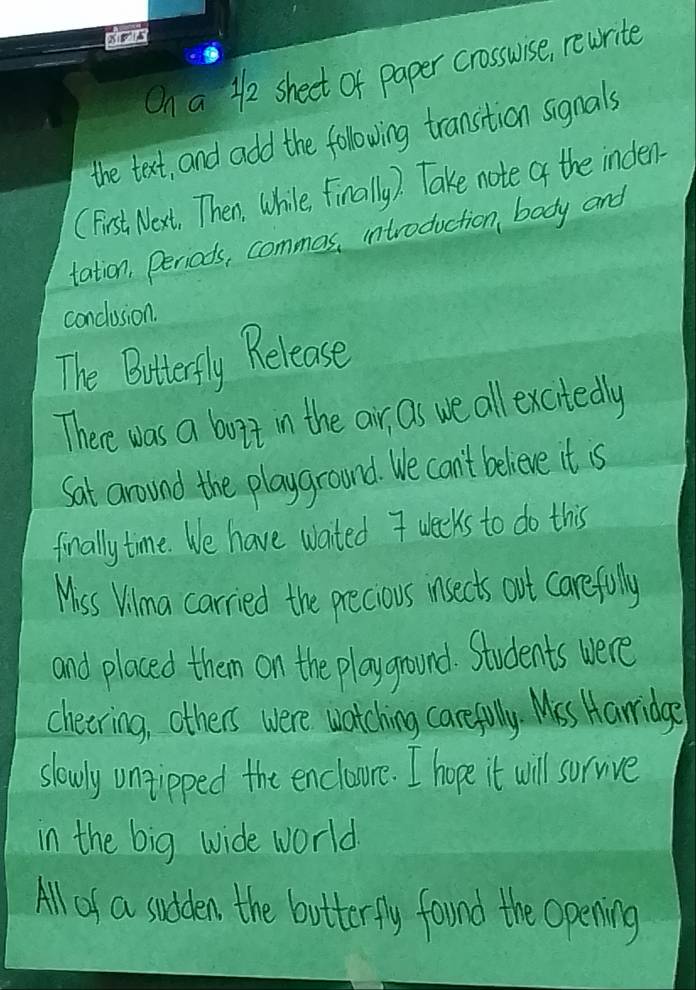 On a 1/2 sheet of paper crosswise, rewrite
the text, and add the following transition signals
(First, Next, Then, While, Finally). Take note of the inden-
tation, periods, commas, introduction, body and
conclusion.
The Butterfly Release
There was a buzz in the air, as we all excitedly
sat around the playground. We can't believe it is
finally time. We have waited 7 weeks to do this
Miss Vilma carried the precious insects out carefully
and placed them on the playground. Students were
cheering, others were watching carefully. Miss Harridge
slowly unzipped the enclosure. I hope it will survive
in the big wide world.
All of a sudden, the butterfly found the opening